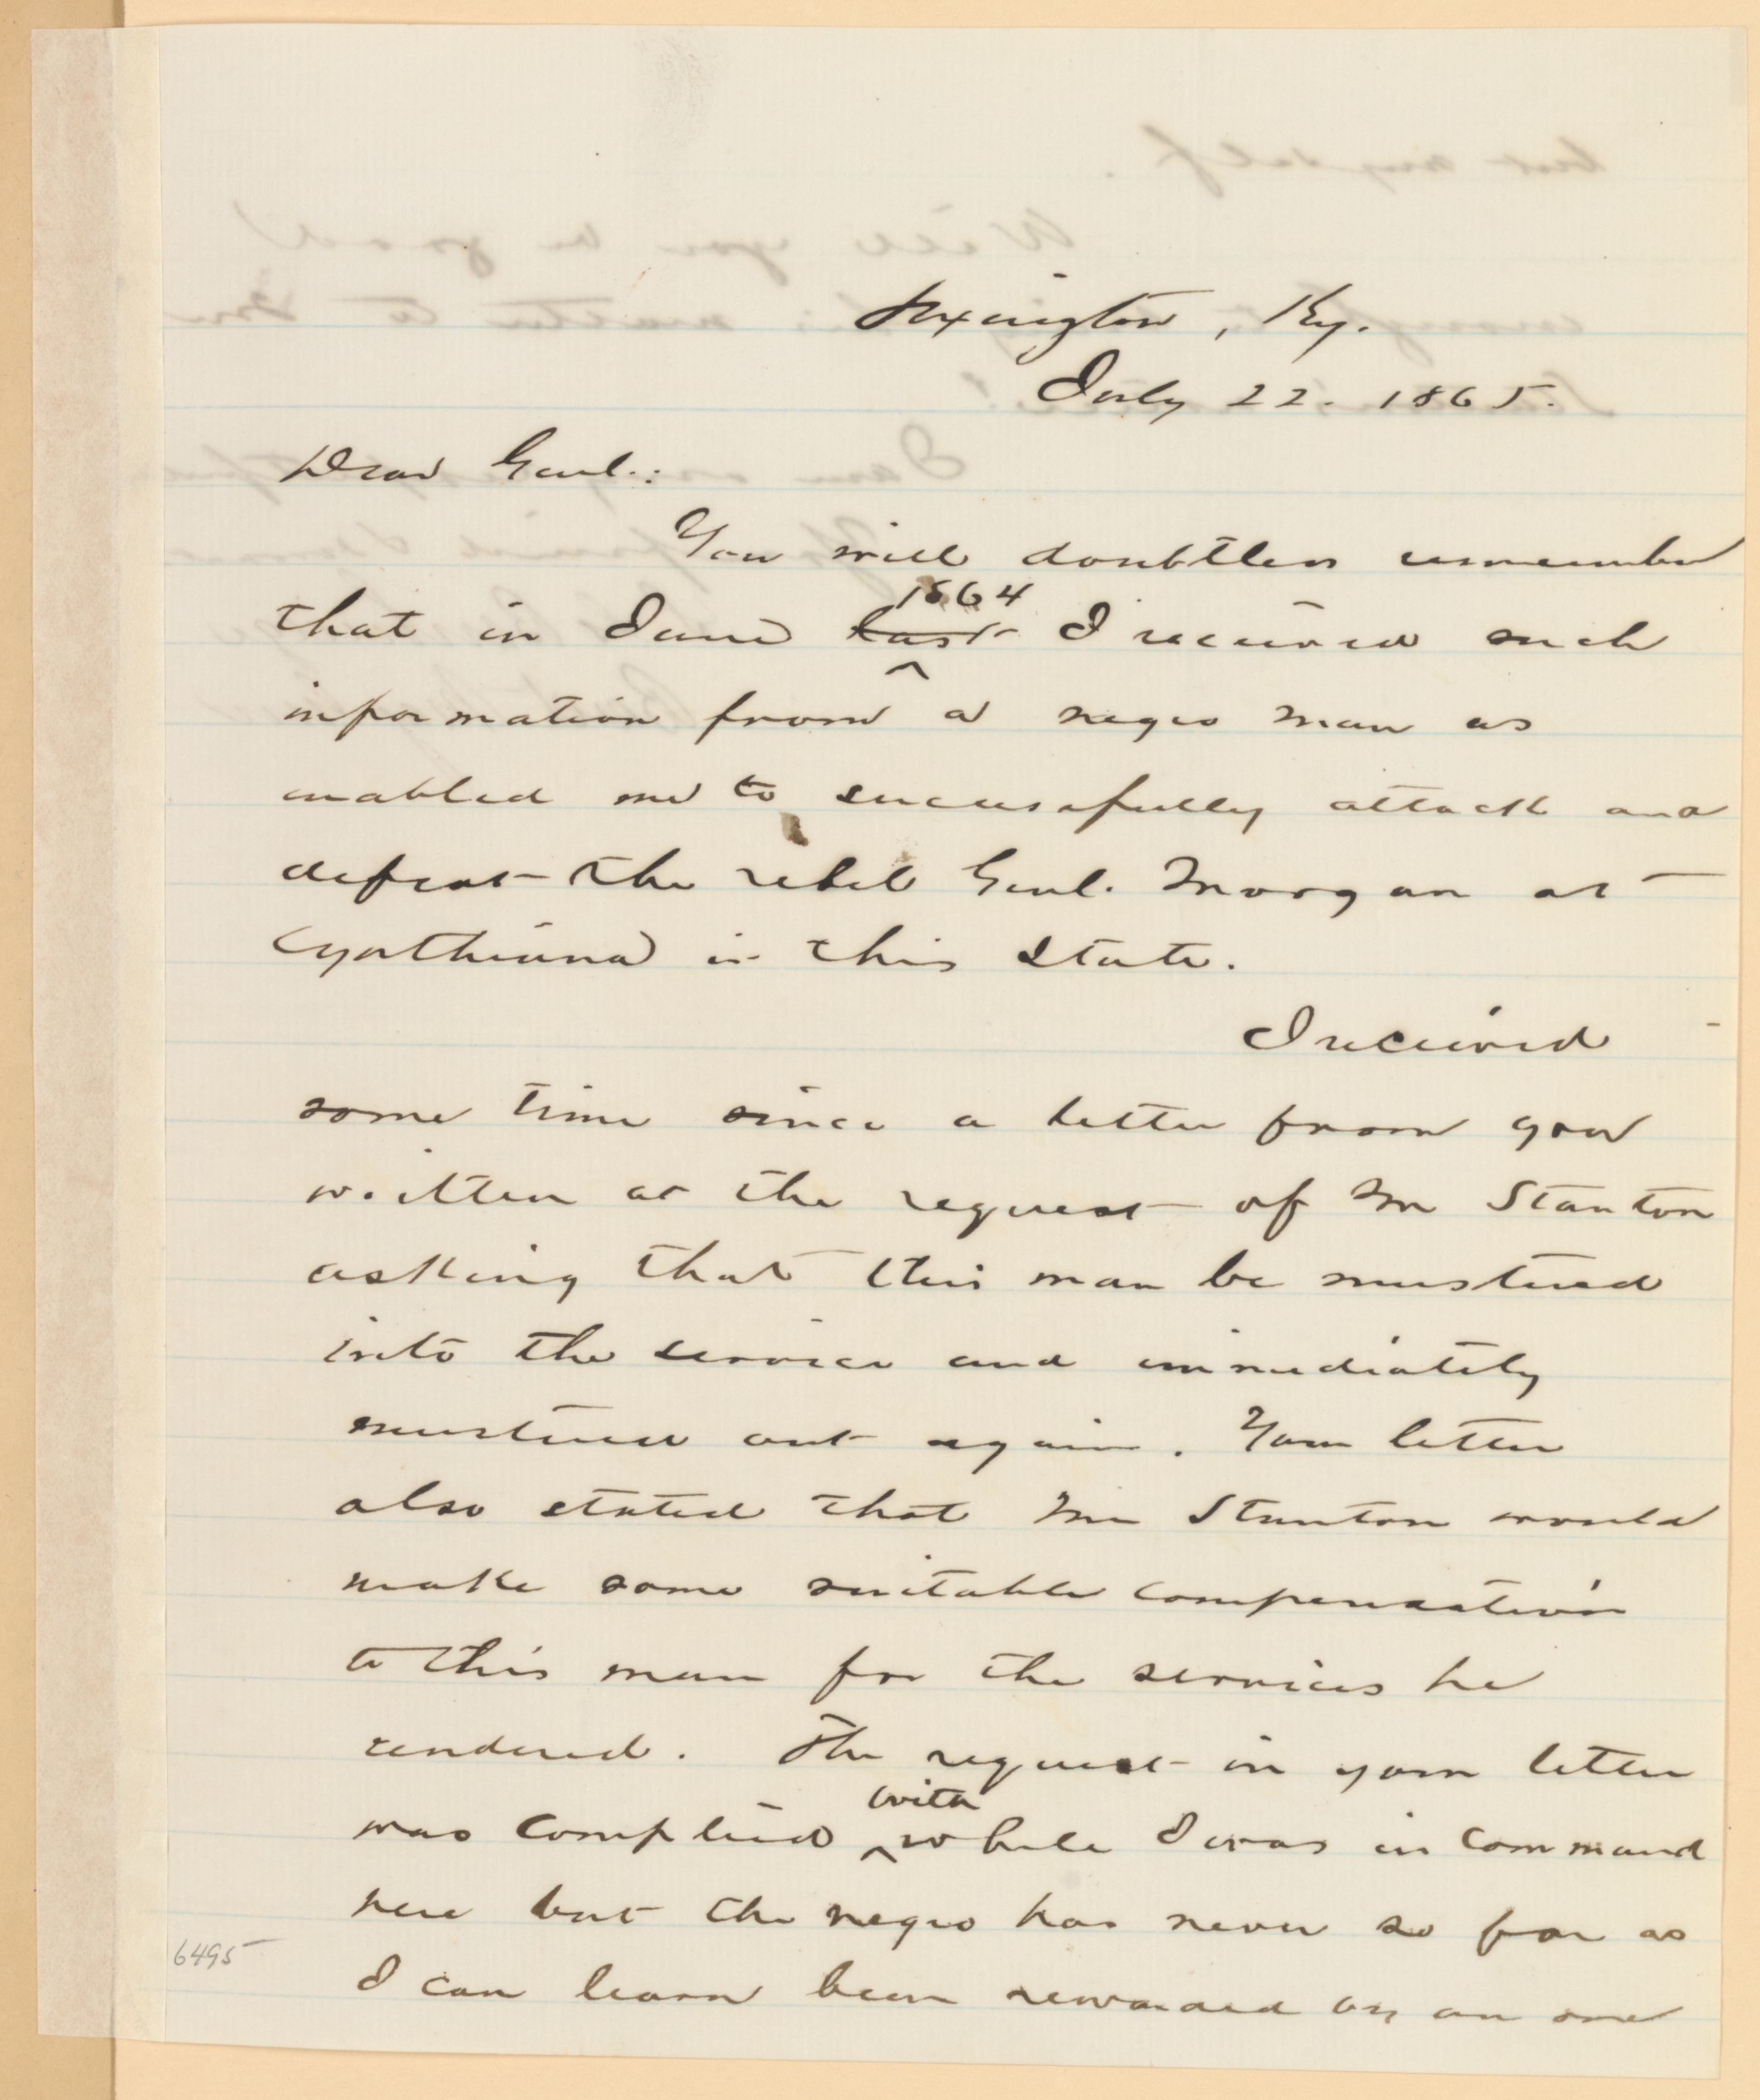 Lexington, Ky.
July 22. 1865.
Dear Genl.:
You will doubtless remember
1864
that in June last I received such
information from a negro man as
enabled me to successfully attack and
defeat the rebel Genl. Morgan at
Cynthiana in this State.
I received
some time since a letter from you
written at the request of Mr Stanton
asking that this man be mustered
into the service and immediately
mustered out again. Your letter
also stated that Mr Stanton would
make some suitable compensation
to this man for the services he
rendered. The request in your letter
with
was complied ^ while I was in command
here but the negro has never so far as
6495
I can learn been rewarded by an one